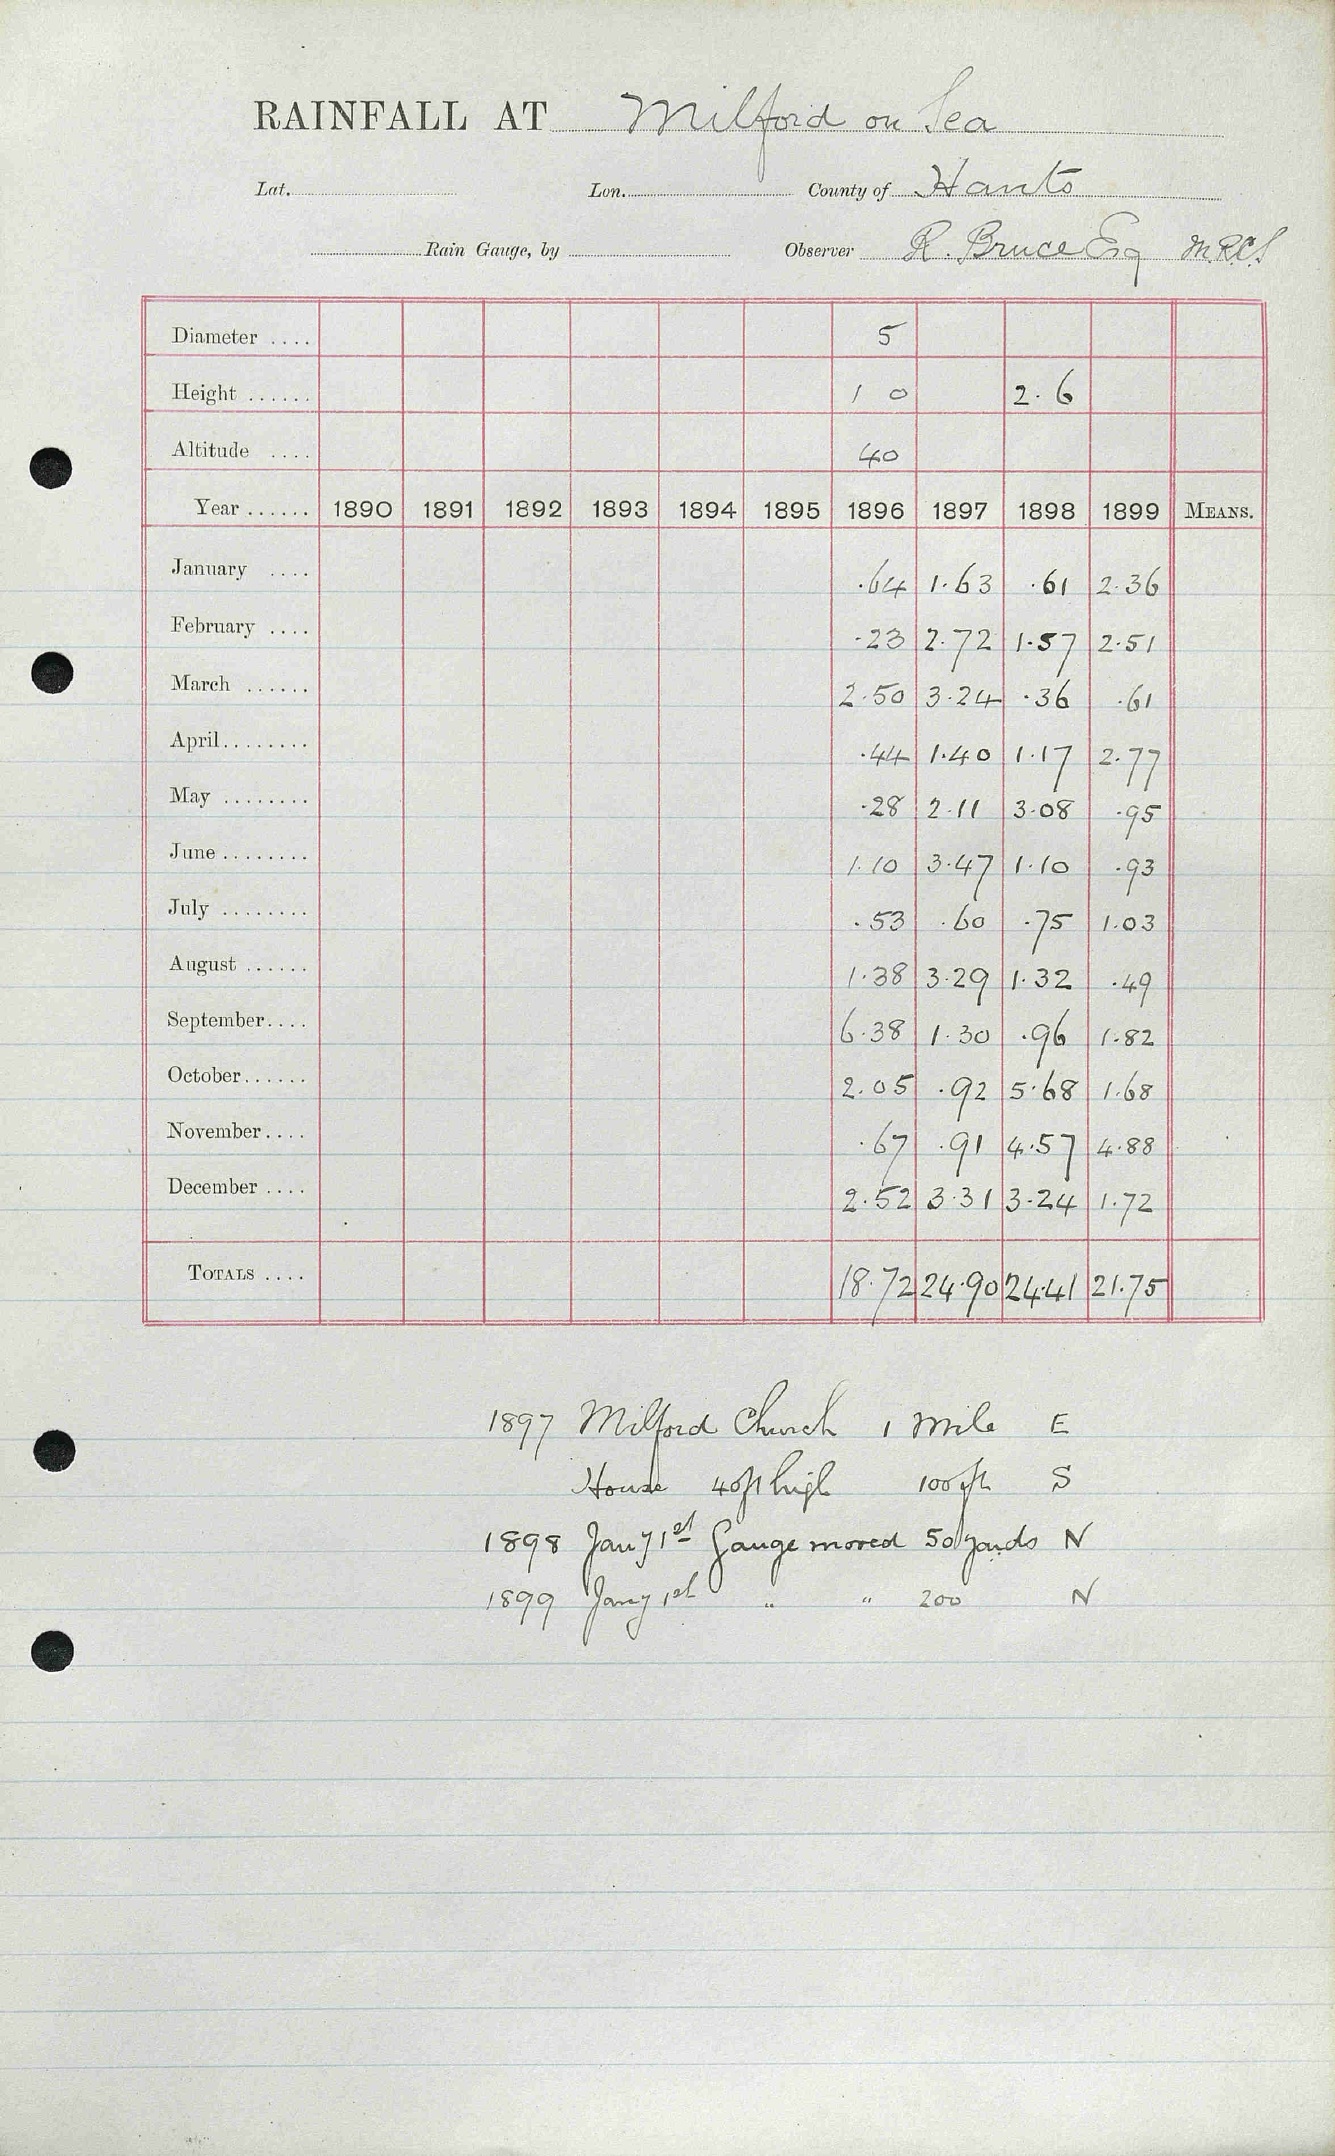 RAINFALL AT Milford on Sea
Lat. Lon. County of Hants
Rain Gauge, by Observer R. Bruce Esq M.R.C.S
Diameter .... 5
Height ...... 1 0 2.6
Altitude .... 40
Year ...... 1890 1891 1892 1893 1894 1895 1896 1897 1898 1899 MEANS.
January .... .64 1.63 .61 2.36
February .... .23 2.72 1.57 2.51
March ...... 2.50 3.24 .36 .61
April........ .44 1.40 1.17 2.77
May ........ .28 2.11 3.08 .95
June ........ 1.10 3.47 1.10 .93
July ........ .53 .60 .75 1.03
August ...... 1.38 3.29 1.32 .49
September.... 6.38 1.30 .96 1.82
October...... 2.05 .92 5.68 1.68
November.... .67 .91 4.57 4.88
December .... 2.52 3.31 3.24 1.72
TOTALS .... 18.72 24.90 24.41 21.75
1897 Milford Church 1 Mile E
House 40ft high 100ft S
1898 Jany 1st Gauge moved 50 yards N
1899 Jany 1st " " 200 N